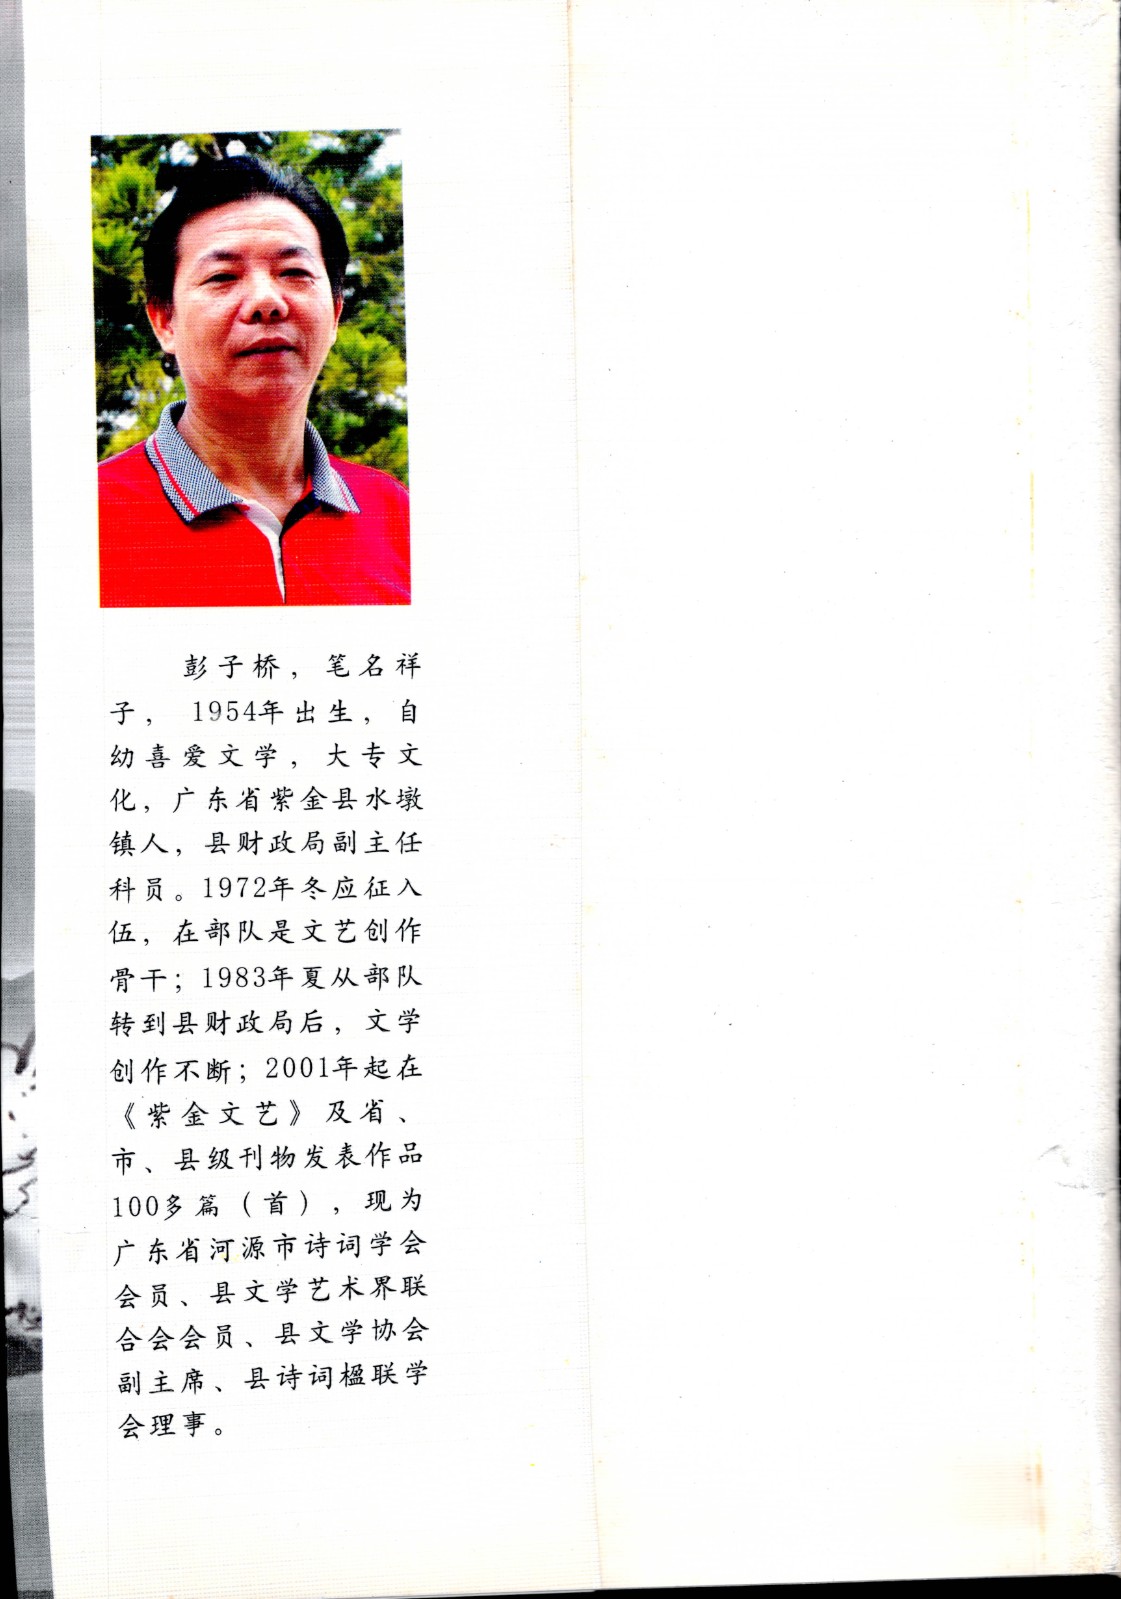 彭子桥，笔名祥
子， 1954年出生，自
幼喜爱文学，大专文
化，广东省紫金县水墩
镇人，县财政局副主任
科员。1972年冬应征入
伍，在部队是文艺创作
骨干；1983年夏从部队
转到县财政局后，文学
创作不断；2001年起在
《紫金文艺》及省、
市、县级刊物发表作品
100多篇（首），现为
广东省河源市诗词学会
会员、县文学艺术界联
合会会员、县文学协会
副主席、县诗词楹联学
会理事。